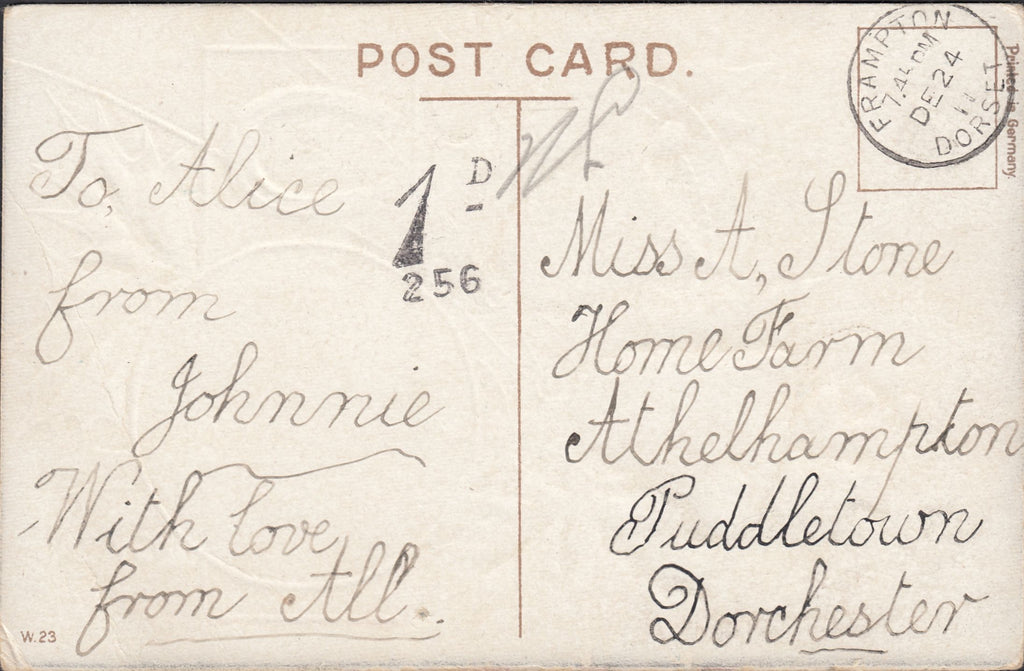 POST CARD.
FRAMPTON
7.45 PM
DE 24
11
DORSET
Printed in Germany.
To, Alice
from
Johnnie
With love
from All.
1D
256
Miss A, Stone
Home Farm
Athelhampton
Puddletown
Dorchester
W.23